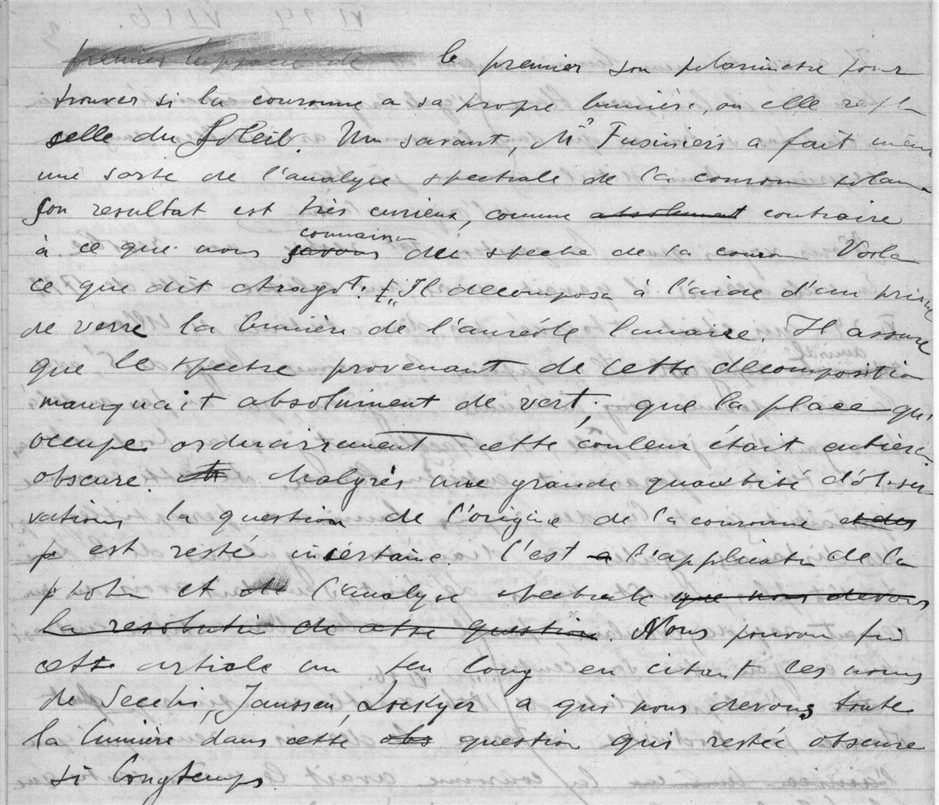 le premier son polarimetre pour
trouver si la couronne a sa propre lumière, ou elle
celle du Soleil. Un savant, Mr Fusinieri a fait même
une sorte de l'analyse spectrale de la couronn solaire
son resultat est très curieux, comme absolument contraire
à ce que nous savons connaisson du spectre de la couron Voila
ce que dit Arago: "Il decomposa à l'aide d'un prisme
de verre la lumière de l'auréole lunaire. Il assure
que le spectre provenant de cette decomposition
manquait absolument de vert; que la place qu'
occupe ordinairement cette couleur était entierem
obscure. Malgrés une grande quantité d'obser
vations la question de l'origine de la couronne et des
p est resté incertaine. C'est a l'application de la
photm et de l'analyse spectrale que nous devons
la resolution de cette question. Nous pouvon fin
cette article un peu long en citant les noms
de Secchi, Janssen, Lockyer a qui nous devons toute
la lumière dans cette obs question qui restée obscure
si longtemps.